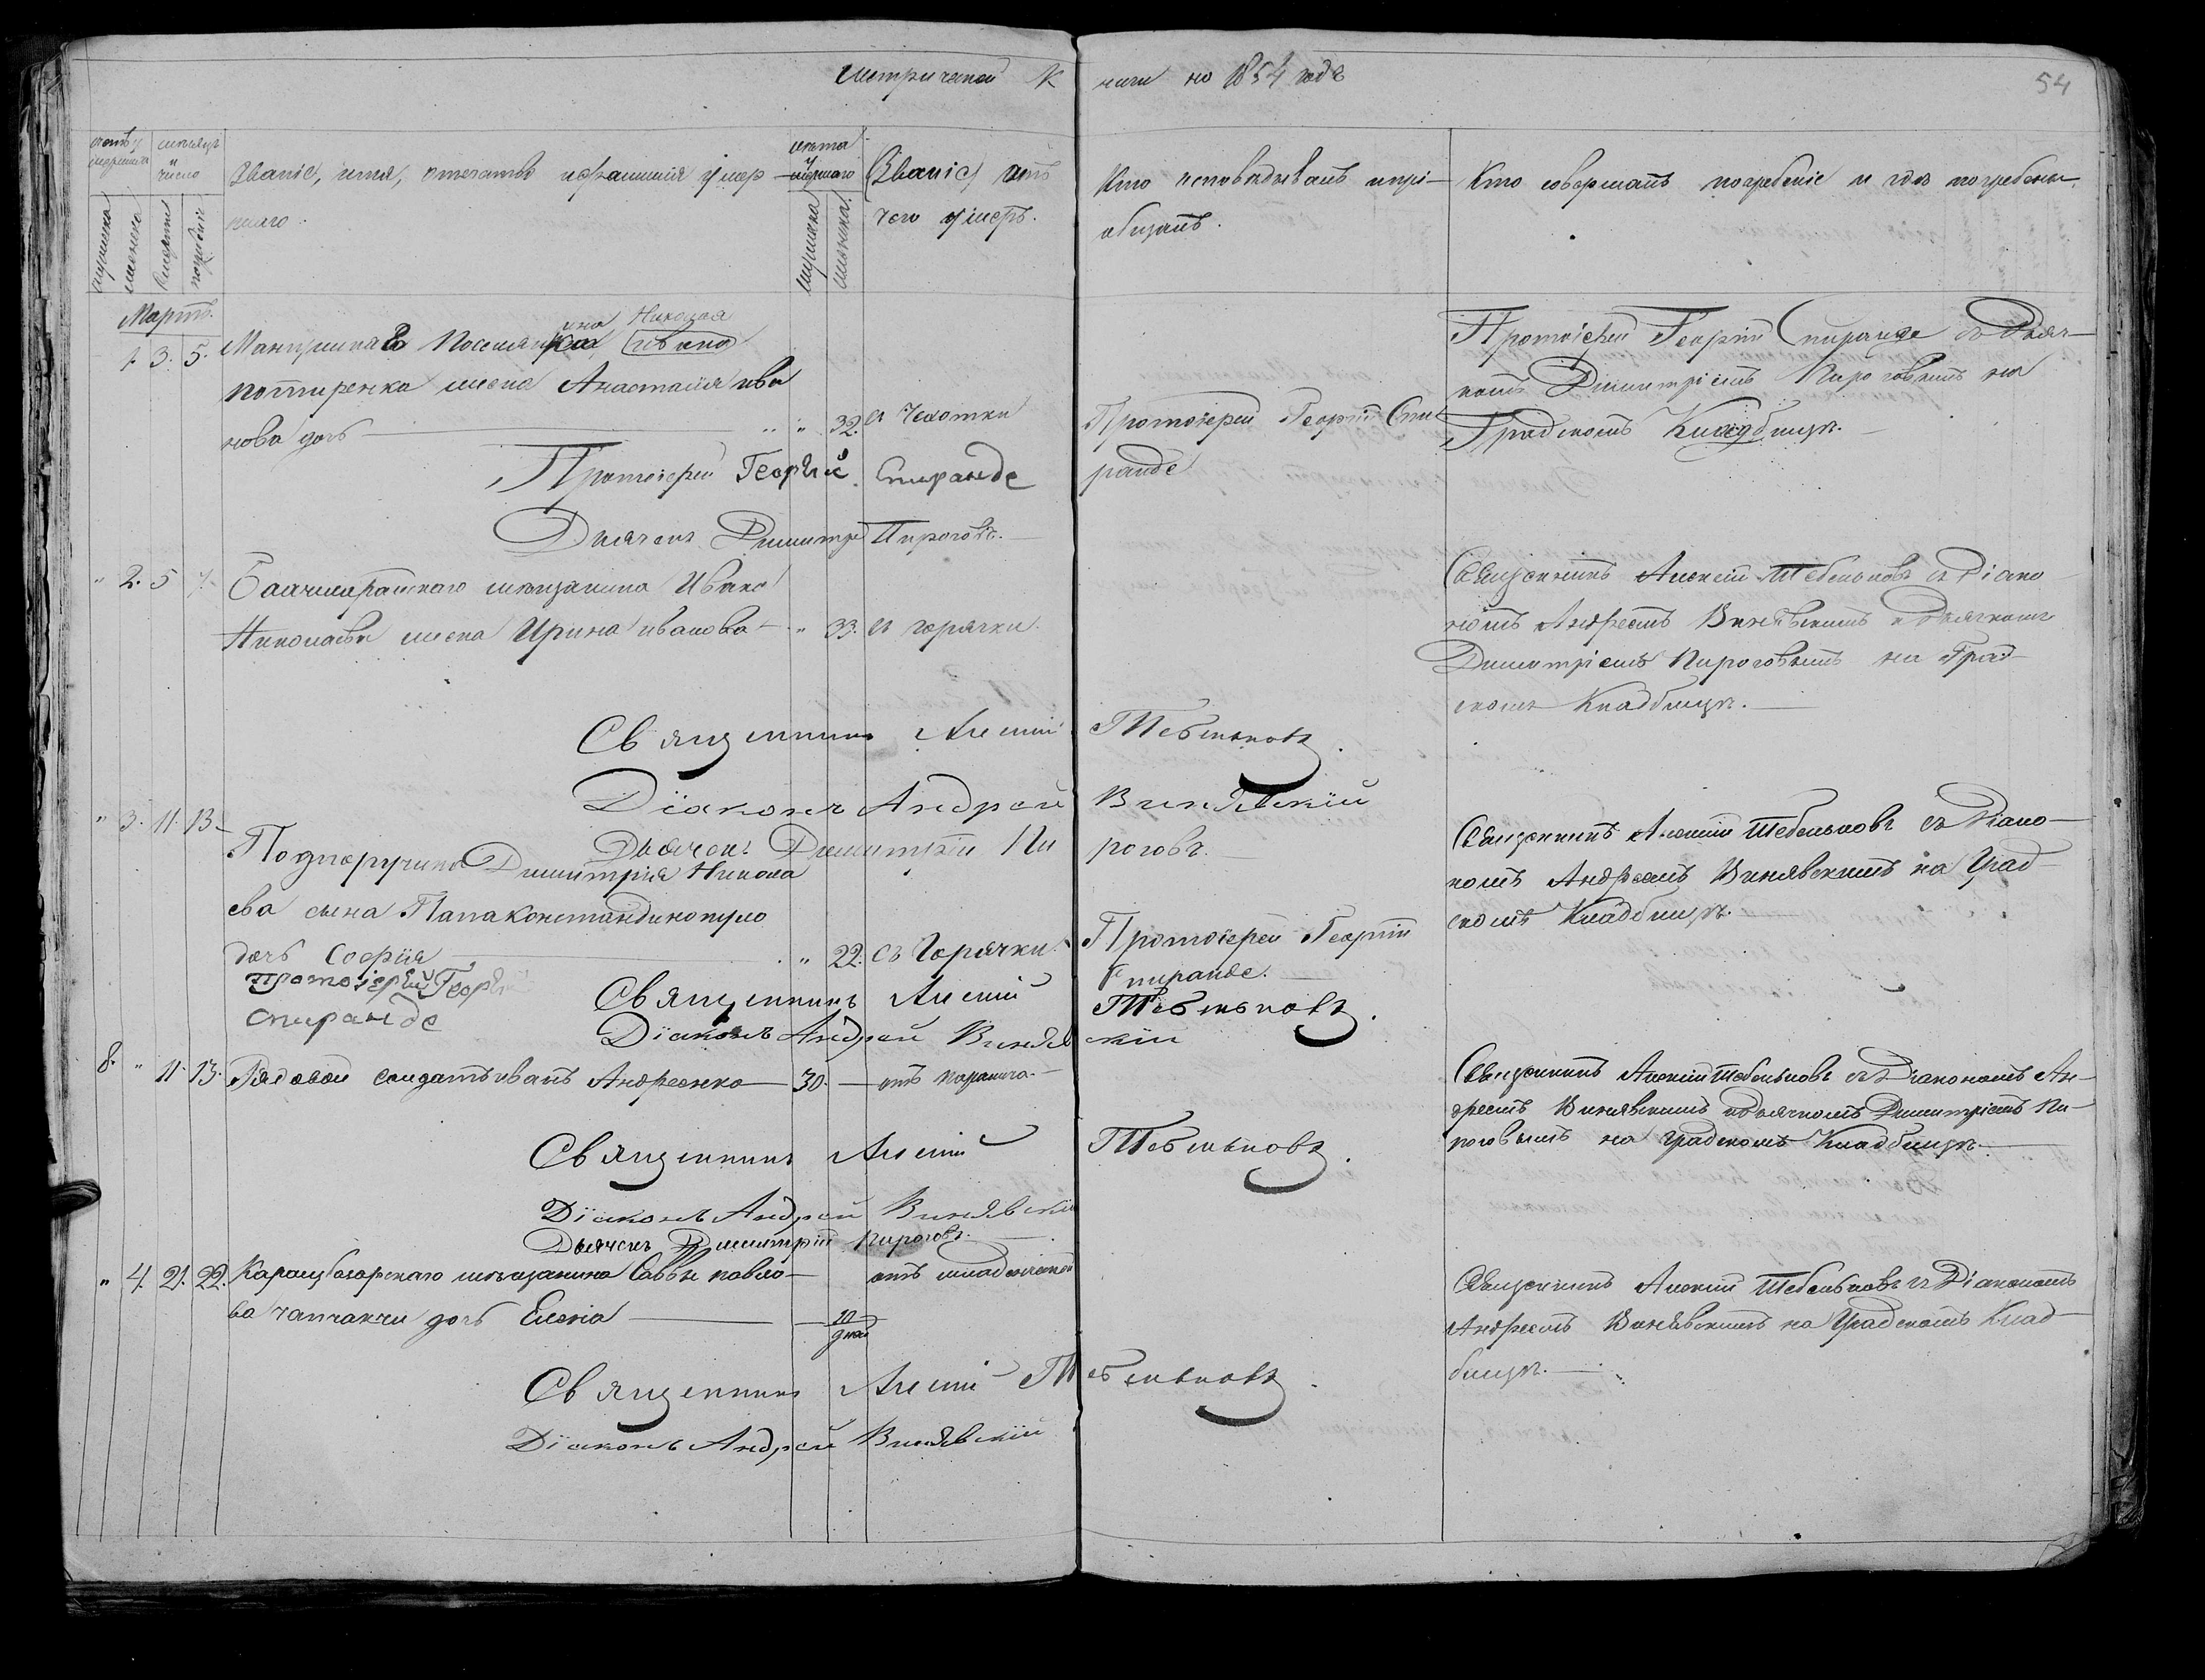 метрической К
ниги на 1854 годъ
54
счетъ умершихъ
мужеска
женска
мѣсяцъ и число
смерти
погребенія
Званіе, имя, отечество и фамилія умер
шаго.
лѣта умершаго
мужеска
женска
(Званіе) отъ
чего умеръ.
Кто исповѣдывалъ и прі-
общалъ.
Кто совершалъ погребеніе и гдѣ погребены.
Мартъ.
1. 3. 5.
ина Николая
Мангушска го поселян ка (ивана)
жена Анастасія ива
нова дочь " " 32. отъ Чахотки
Протоіерей Георгій Спи
ранде
Протоіерей Георгій Спиранде съ Дьяч-
комъ Димитріемъ Пироговымъ на
Градскомъ Кладбищѣ.
Протоіерей Георгій Спиранде
Дьячекъ Димитр Пироговъ.
" 2. 5 7. Бахчисарайскаго мѣщанина Ивана
Николаева жена Ирина иванова " 33. отъ горячки.
Священникъ Алексій Шебельковъ съ Діако
номъ Андреемъ Винявскимъ и Дьячкомъ
Димитріемъ Пироговымъ на Град
скомъ Кладбищѣ.
Священникъ Алексій Шебельковъ.
Діаконъ Андрей Винявскій
Дьячекъ Димитрій Пи роговъ.
" 3. 11. 13.
Подпоручика Димитрія Никола
ева сына Папаконстандинопуло
дочь Софія " 22. съ Горячки.
Протоіерей Георгій
Спиранде.
Священникъ Алексій Шебельковъ съ Діако-
номъ Андреемъ Винявскимъ на Град
скомъ Кладбищѣ.
протоіерей Георгій
Спиранде
Священникъ Алексій Шебельковъ.
Діаконъ Андрей Винявскій
8. " 11. 13. Рядовой солдатъ иванъ Андреенко 30. отъ паралича.
Священникъ Алексій Шебельковъ съ Діакономъ Ан-
дреемъ Винявскимъ и дьячкомъ Димитріемъ Пи-
роговымъ на градскомъ Кладбищѣ.
Священникъ Алексій Шебельковъ.
Діаконъ Андрей Винявскій
Дьячекъ Димитрій Пироговъ.
" 4. 21. 22. Карасубазарскаго мѣщанина Саввы павло- отъ младенческой
ва чапчакчи дочь Елена 10 дней
Священникъ Алексій Шебельковъ съ Діакономъ
Андреемъ Винявскимъ на Градскомъ Клад-
бищѣ.
Священникъ Алексій Шебельковъ.
Діаконъ Андрей Винявскій